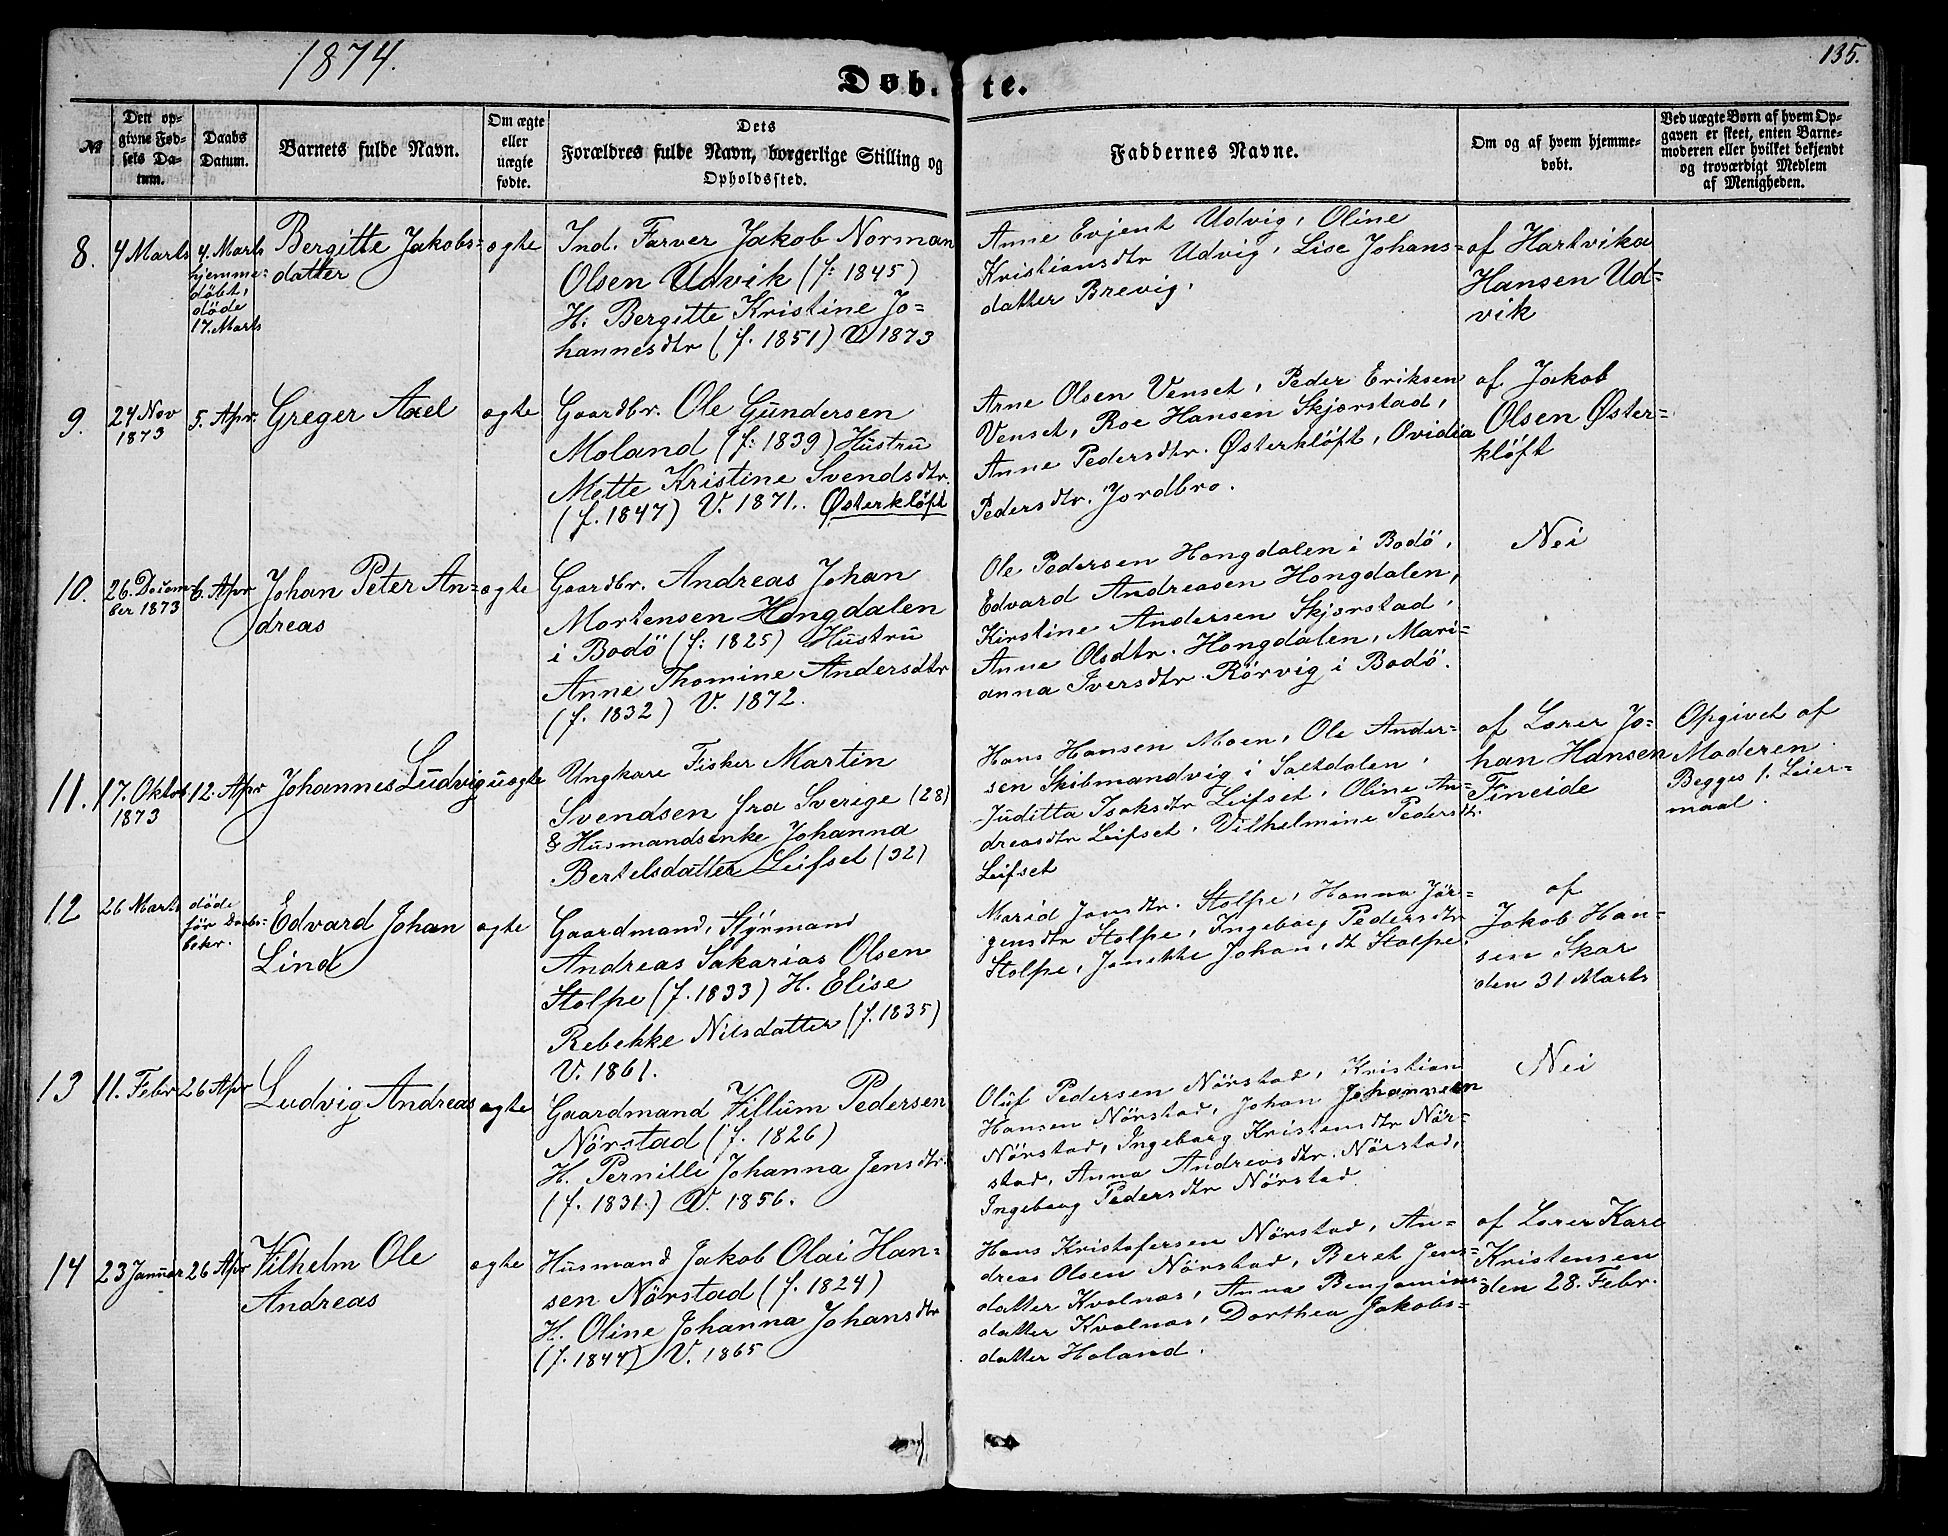 1874.
135.
Døbte.
№
Dett opgivne Fødsels Datum.
Daabs Datum.
Barnets fulde Navn.
Om ægte eller uægte fødte.
Dets Forældres fulde Navn, borgerlige Stilling og Opholdssted.
Faddernes Navne.
Om og af hvem hjemmedøbt.
Ved uægte Børn af hvem Opgaven er skeet, enten Barnemoderen eller hvilket bekjendt og troværdigt Medlem af Menigheden.
8.
4 Marts
4. Marts
hjemme-
döbt,
döde
17. Marts
Bergitte Jakobs=
datter
ægte
Ind. Farver Jakob Norman
Olsen Udvik (f: 1845)
H: Bergitte Kristine Jo=
hannesdtr (f. 1851) V 1873
Anne Evjent Udvig, Oline
Kristiansdtr Udvig, Lise Johans=
datter Brevig.
af Hartvika
Hansen Ud=
vik
9.
24 Nov
1873
5. Apr.
Greger Axel
ægte
Gaardbr. Ole Gundersen
Moland (f: 1839) Hustru
Mette Kristine Svendsdtr.
(f. 1847) V. 1871. Østerkløft
Arne Olsen Venset, Peder Eriksen
Venset, Roe Hansen Skjærstad,
Anne Pedersdtr. Østerkløft, Ovidia
Pedersdtr. Jordbro.
af Jakob
Olsen Øster=
kløft
10.
26. Decem-
ber 1873
6. Apr
Johan Peter An=
dreas
ægte
Gaardbr. Andreas Johan
Mortensen Hongdalen
i Bodö (f: 1825) Hustru
Anne Thomine Andersdtr
(f. 1832) V. 1872.
Ole Pedersen Hongdalen i Bodö,
Edvard Andreasen Hongdalen,
Kirstine Andersen Skjærstad,
Anne Olsdtr. Hongdalen, Mari=
anna Iversdtr. Rörvig i Bodö.
Nei
11.
17. Oktob
1873
12. Apr
Johannes Ludvig
uægte
Ungkare Fisker Martin
Svendsen fra Sverige (28)
& Husmandsenke Johanna
Bertelsdatter Leifset (32)
Hans Hansen Moen, Ole Ander=
sen Skibmandvig i Saltdalen,
Juditta Isaksdtr Leifset, Oline An=
dreasdtr Leifset, Vilhelmine Pedersdtr.
Leifset
af Lærer Jo=
han Hansen
Fineide
Opgivet af
Moderen.
Begges 1. Leier=
maal.
12
26 Marts
döde
för Daabs-
bekr.
Edvard Johan
Lind
ægte
Gaardmand, Styrmand
Andreas Sakarias Olsen
Stolpe (f. 1833) H. Elise
Rebekke Nilsdatter (f. 1835)
V. 1861.
Marid Jonsdtr. Stolpe, Hanna Jör=
gensdtr Stolpe, Ingeborg Pedersdtr
Stolpe, Jenikke Johansdt Stolpe.
af
Jakob Han=
sen Skar
den 31 Marts
13
11. Febr
26 Apr
Ludvig Andreas
ægte
Gaardmand Villum Pedersen
Nörstad (f. 1826)
H. Pernille Johanna Jensdtr.
(f. 1831.) V. 1856.
Oluf Pedersen Nörstad, Kristian
Hansen Nörstad, Johan Johannesen
Nörstad, Ingeborg Kristensdtr Nör=
stad, Anna Andreasdtr. Nörstad,
Ingeborg Pedersdtr Nörstad.
Nei
14
23 Januar
26 Apr
Vilhelm Ole
Andreas
ægte
Husmand Jakob Olai Han=
sen Nörstad (f. 1824)
H. Oline Johanna Johansdtr
(f. 1844) V. 1865
Hans Kristofersen Nörstad, An=
dreas Olsen Nörstad, Beret Jens=
datter Kvalnæs, Anna Benjamins=
datter Kvalnæs, Dorthea Jakobs=
datter Holand.
af Lærer Kare
Kristensen
den 28. Febr.